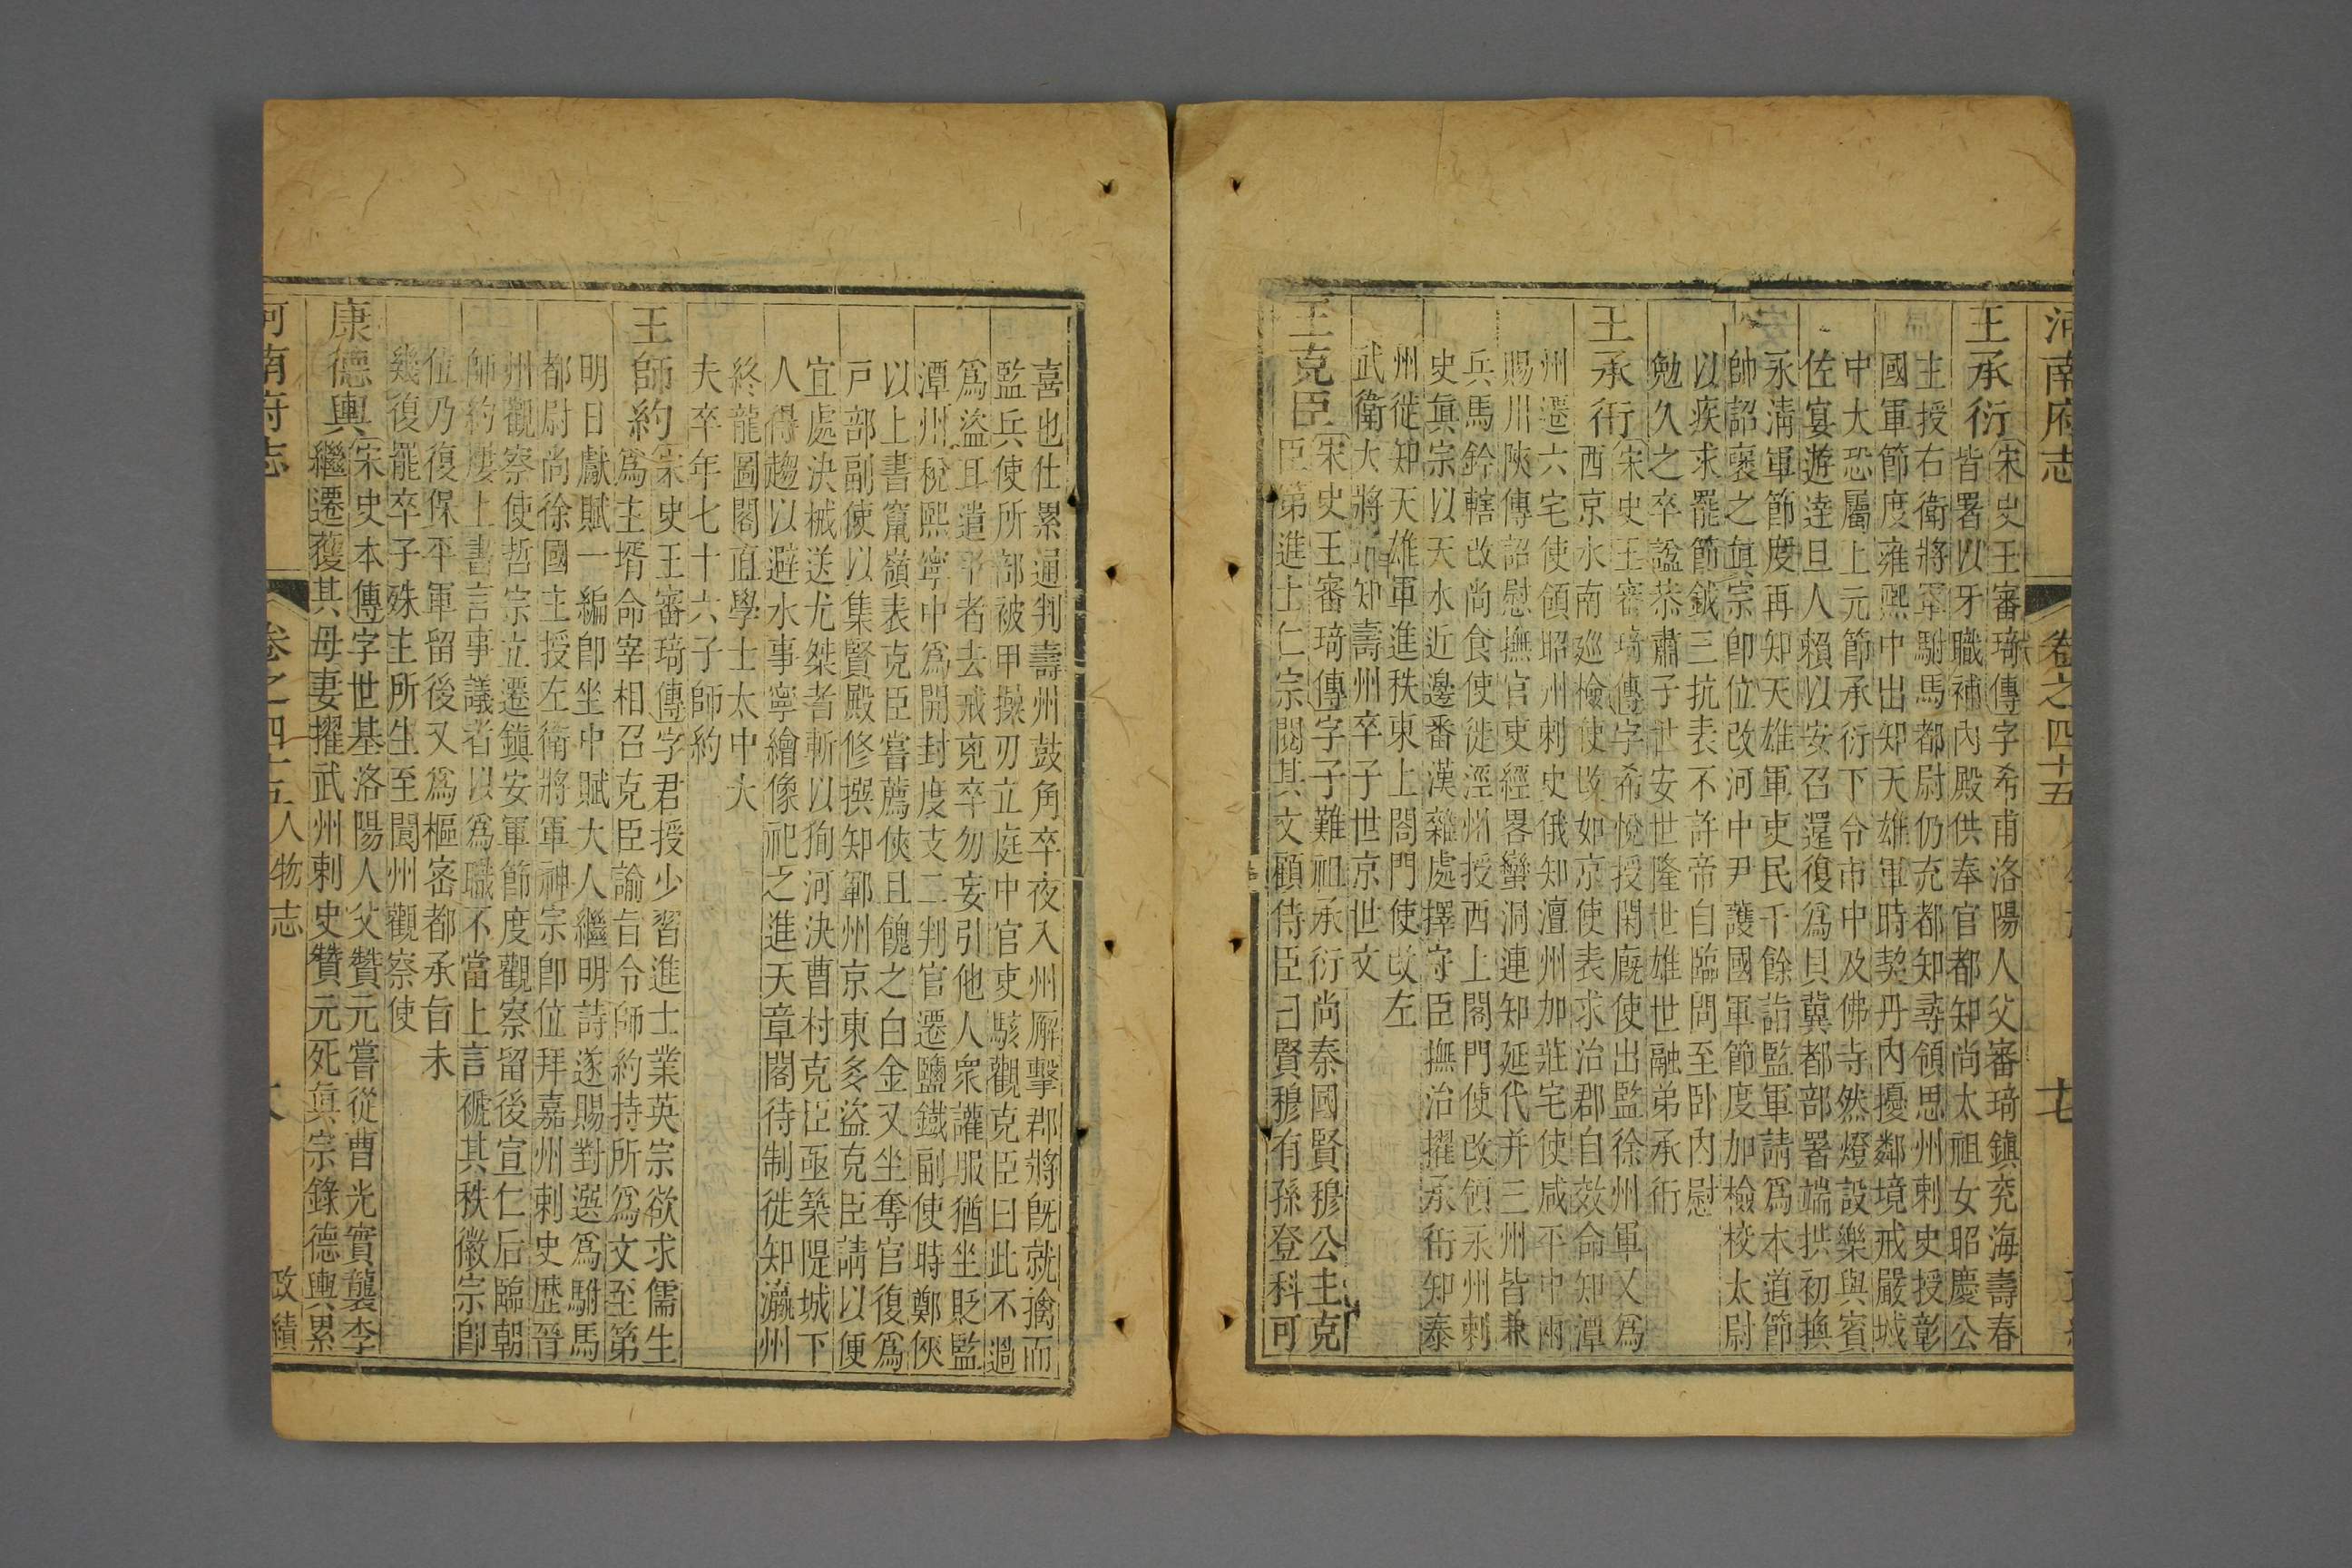 河南府志 卷之四十五
王承衍
宋史王審琦傳字希甫洛陽人父審琦鎮兖海壽春
皆署以牙職補內殿供奉官都知尚太祖女昭慶公
主授右衛將軍駙馬都尉仍充都知尋領思州刺史授彰
國軍節度雍熙中出知天雄軍時契丹內擾鄰境戒嚴城
中大恐屬上元節承衍下令市中及佛寺然燈設樂與賓
佐宴遊達旦人賴以安召還復為貝冀都部署端拱初換
永淸軍節度再知天雄軍吏民千餘詣監軍請為本道節
帥詔襃之眞宗卽位改河中尹護國軍節度加檢校太尉
以疾求罷節鉞三抗表不許帝自臨問至卧內慰
勉久之卒諡恭肅子世安世隆世雄世融弟承衎
王承衎
宋史王審琦傳字希悅授閑廐使出監徐州軍又為
西京水南巡檢使改如京使表求治郡自效命知潭
州遷六宅使領昭州刺史俄知澶州加莊宅使咸平中兩
賜川陝傳詔慰撫官吏經畧蠻洞連知延代并三州皆兼
兵馬鈐轄改尚食使徙涇州授西上閤門使改領永州刺
史眞宗以天水近邊番漢雜處擇守臣撫治擢承衎知秦
州徙知天雄軍進秩東上閤門使改左
武衛大將軍知壽州卒子世京世文
王克臣
宋史王審琦傳字子難祖承衍尚秦國賢穆公主克
臣第進士仁宗閱其文顧侍臣曰賢穆有孫登科可
喜也仕累通判壽州鼓角卒夜入州廨擊郡將旣就擒而
監兵使所部被甲操刃立庭中官吏駭觀克臣曰此不過
為盜耳遣平者去戒克卒勿妄引他人衆讙服猶坐貶監
潭州稅熙寧中為開封度支二判官遷鹽鐵副使時鄭俠
以上書竄嶺表克臣嘗薦俠且餽之白金又坐奪官復為
戸部副使以集賢殿修撰知鄆州京東多盜克臣請以便
宜處決械送尤桀者斬以狥河決曹村克臣亟築隄城下
人得趨以避水事寧繪像祀之進天章閣待制徙知瀛州
終龍圖閣直學士太中大
夫卒年七十六子師約
王師約
宋史王審琦傳字君授少習進士業英宗欲求儒生
為主壻命宰相召克臣諭旨令師約持所為文至第
明日獻賦一編卽坐中賦大人繼明詩遂賜對選為駙馬
都尉尚徐國主授左衛將軍神宗卽位拜嘉州刺史歷晉
州觀察使哲宗立遷鎮安軍節度觀察留後宣仁后臨朝
師約屢上書言事議者以為職不當上言褫其秩徽宗卽
位乃復保平軍留後又為樞密都承旨未
幾復罷卒子殊主所生至閬州觀察使
康德輿
宋史本傳字世基洛陽人父贊元嘗從曹光實襲李
繼遷獲其母妻擢武州刺史贊元死眞宗錄德輿累
河南府志 卷之四十五人物志 政績